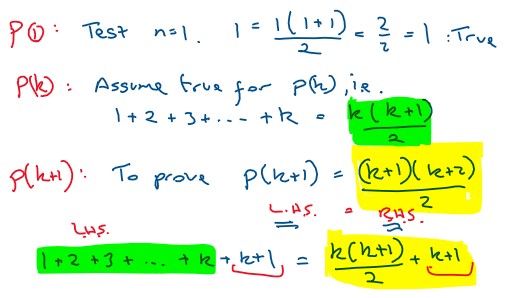 P(1): Test n=1. 1 = 1(1+1)/2 = 2/2 = 1 :True
P(k): Assume true for P(k), i.e.
1+2+3+...+k = k(k+1)/2
P(k+1): To prove P(k+1) = (k+1)(k+2)/2
L.H.S. = R.H.S.
LHS.
1+2+3+...+k+k+1 = k(k+1)/2 + k+1